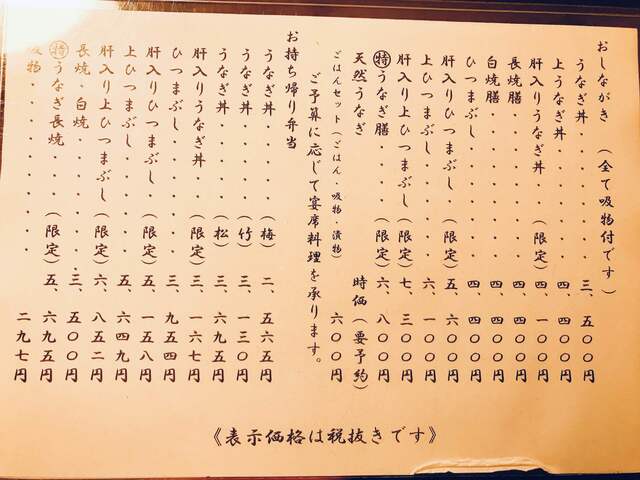 おしながき (全て吸物付です)
うなぎ丼・・・・・・三、五〇〇円
上うなぎ丼・・・・・四、四〇〇円
肝入りうなぎ丼・(限定)四、一〇〇円
長焼膳・・・・・・・四、〇〇〇円
白焼膳・・・・・・・四、〇〇〇円
ひつまぶし・・・・・四、〇〇〇円
肝入りひつまぶし・(限定)五、六〇〇円
上ひつまぶし・・・・六、一〇〇円
肝入り上ひつまぶし(限定)七、三〇〇円
㊕うなぎ膳・・・(限定)六、八〇〇円
天然うなぎ 時価(要予約)
ごはんセット(ごはん・吸物・漬物) 六〇〇円
ご予算に応じて宴席料理を承ります。
お持ち帰り弁当
うなぎ丼・・・・(梅)二、五六五円
うなぎ丼・・・・(竹)三、一三〇円
うなぎ丼・・・・(松)三、
肝入りうなぎ丼・(限定)三、一六七円
ひつまぶし・・・・・三、九五四円
肝入りひつまぶし・(限定)五、一五八円
上ひつまぶし・・・・五、六四九円
肝入り上ひつまぶし(限定)六、八五二円
長焼・白焼・・・・・三、五〇〇円
㊕うなぎ長焼・・(限定)五、六九五円
吸物・・・・・・・・二九七円
《表示価格は税抜きです》